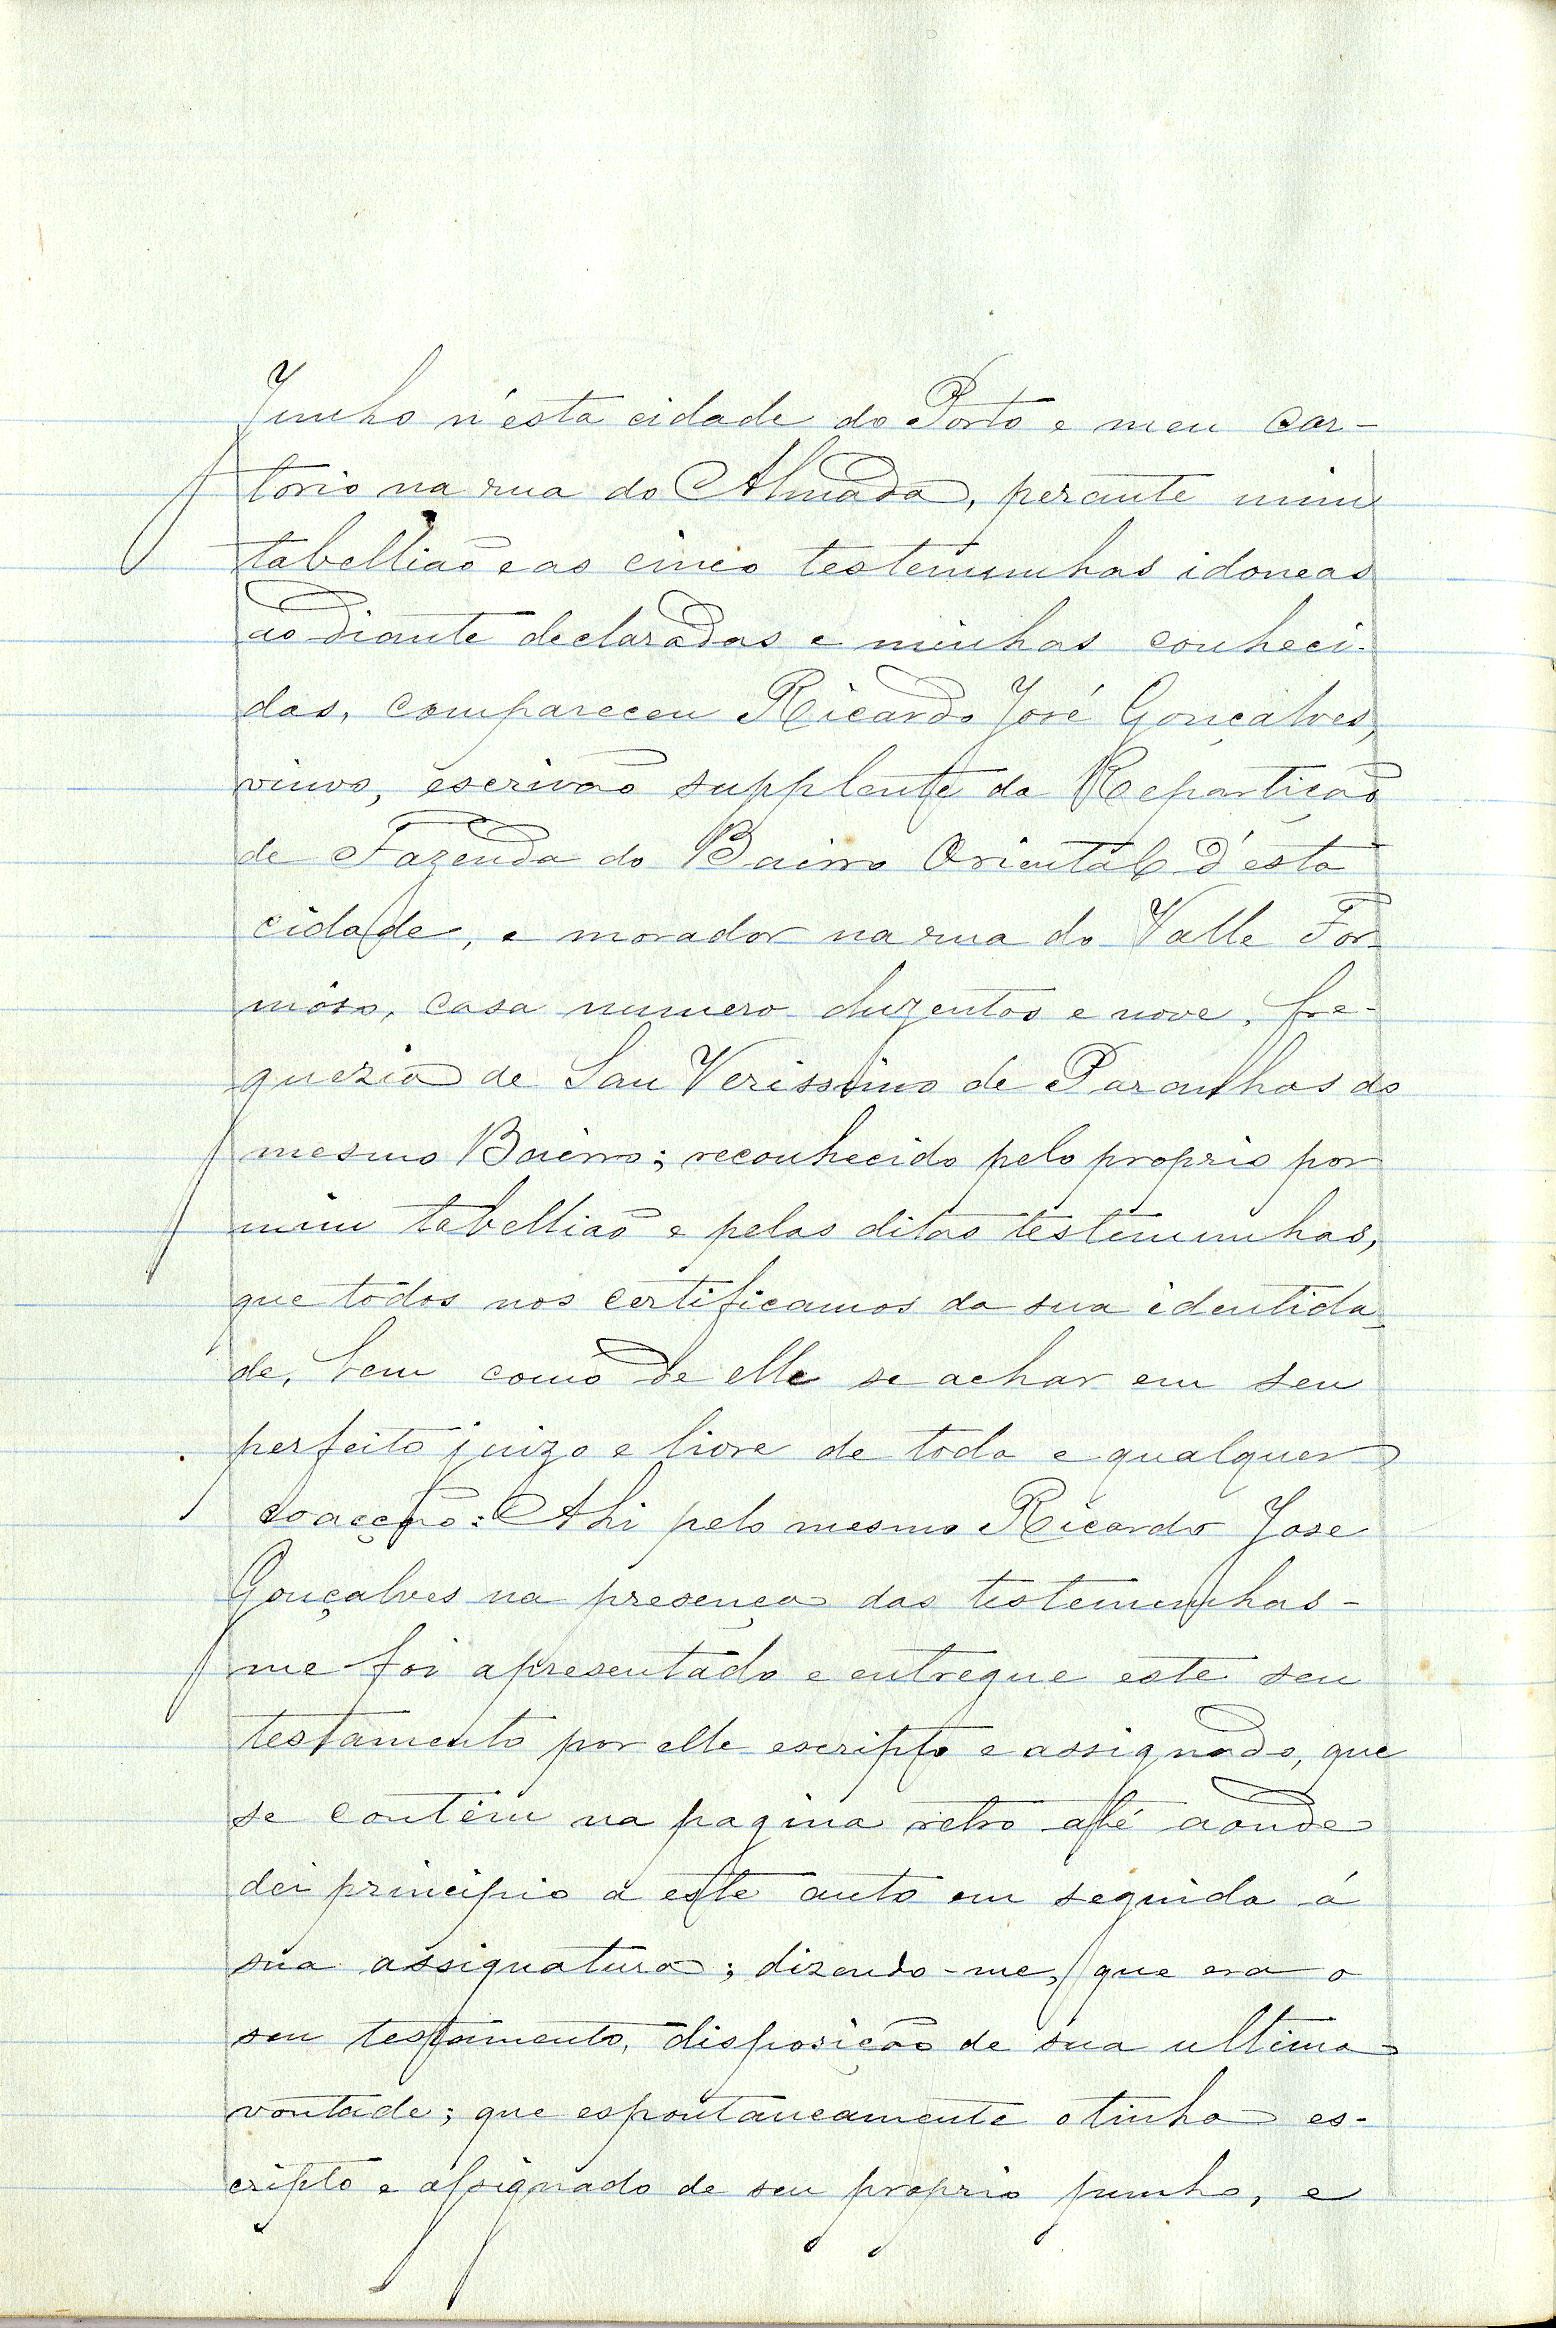 Junho n'esta cidade do Porto e meu car-
torio na rua do Almada, perante mim
tabellião e as cinco testemunhas idoneas
ao diante declaradas e minhas conheci-
das, compareceu Ricardo José Gonçalves,
viuvo, escrivão supplente da Repartição
de Fazenda do Bairro Oriental d'esta
cidade, e morador na rua do Valle For-
môso, casa numero duzentos e nove, fre-
guezia de San Verissimo de Paranhos do
mesmo Bairro; reconhecido pelo proprio por
mim tabellião e pelas ditas testemunhas,
que todos nos certificamos da sua identida-
de, bem como de elle se achar em seu
perfeito juizo e livre de toda e qualquer
coacção: Ahi pelo mesmo Ricardo Jose
Gonçalves na presença das testemunhas -
me foi apresentado e entregue este seu
testamento por elle escripto e assignado, que
se contém na pagina retro até aonde
dei principio a este auto em seguida á
sua assignatura; dizendo-me, que era o
seu testamento, disposição de sua ultima
vontade; que espontaneamente o tinha es-
cripto e assignado de seu proprio punho, e